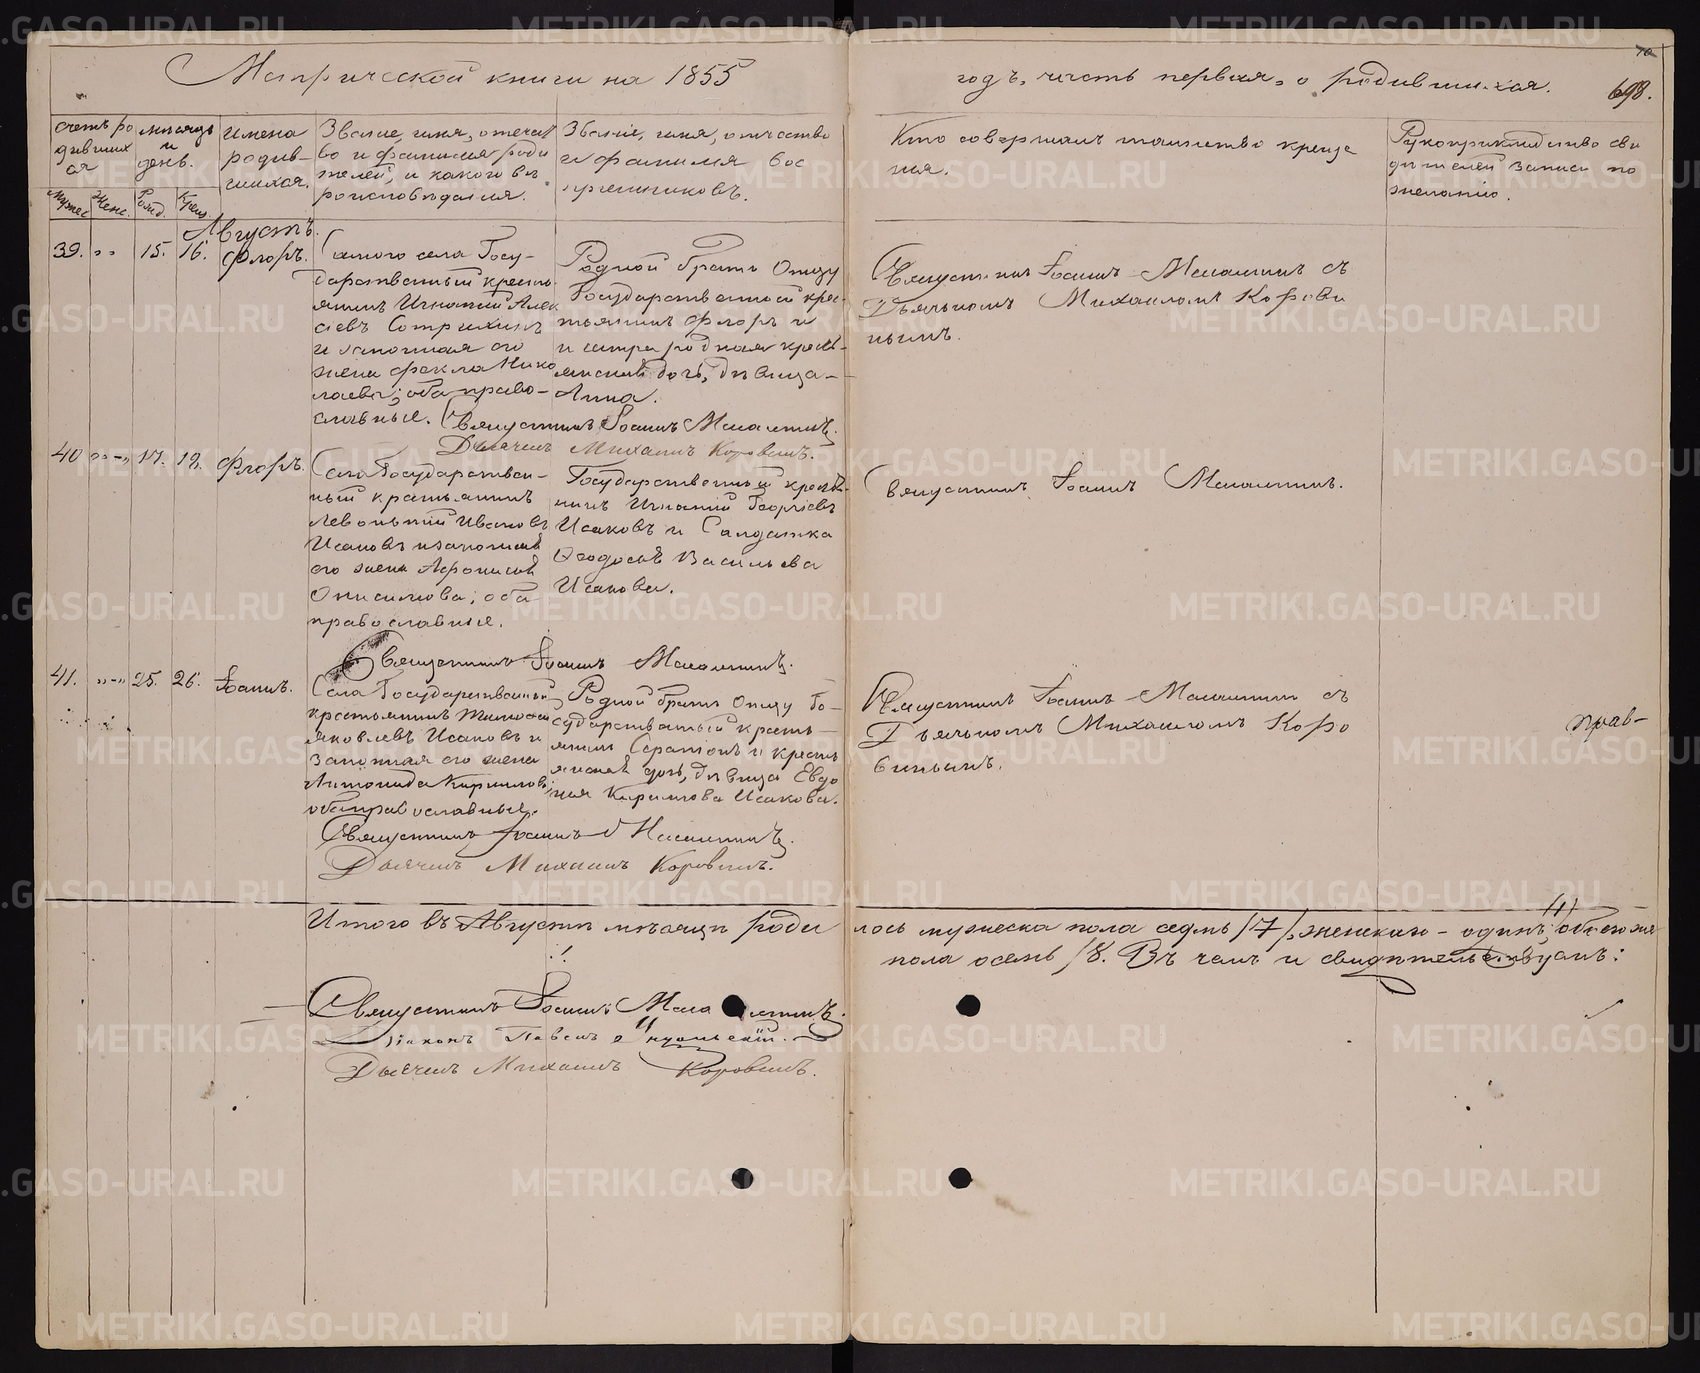 Метрической книги на 1855
годъ, часть первая, о родившихся.
698.
счетъ ро
дивших
ся
мѣсяцъ
и
день.
имена
родив-
шихся.
Званіе, имя, отечест
во и фамилія роди
телей, и какого вѣ
роисповѣданія.
Званіе, имя, отчество
и фамилія вос
пріемниковъ.
Кто совершалъ таинство креще
нія.
Рукоприкладство сви
дѣтелей записи по
желанію.
Мужес
Женс.
Рожд.
Крещ.
Августъ.
39. 15. 16. Флоръ.
Самого села Госу-
дарственный кресть
янинъ Игнатій Алек
сѣевъ
и законная его
жена Фекла Нико
лаева; оба право-
славные.
Родной братъ Отцу
Государственный крес-
тьянинъ Флоръ и
и сестра родная кресть-
янская дочь, дѣвица-
Анна.
Священникъ Іоаннъ
Дьячекъ Михаилъ Коровинъ.
Священникъ Іоаннъ съ
Дьячкомъ Михаиломъ Корови
нымъ.
40 17. 18. Флоръ.
Села Государствен-
ный крестьянинъ
Левонтій Ивановъ
Исаковъ и законная
его жена
Онисимова; оба
православные.
Государственный кресть-
нинъ Игнатій Георгіевъ
Исаковъ и Солдатка
Ѳеодосья Васильева
Исакова.
Священникъ Іоаннъ
Священникъ Іоаннъ
41. 25. 26. Іоаннъ.
Села Государственный
крестьянинъ Тимофей
Яковлевъ Исаковъ и
законная его жена
Антонида Кириллова;
оба православные.
Родной братъ Отцу Го-
сударственный кресть-
янинъ и кресть
янская дочь, дѣвица Евдо
кія Кириллова Исакова.
Священникъ Іоаннъ
Дьячекъ Михаилъ Коровинъ.
Священникъ Іоаннъ съ
Дьячкомъ Михаиломъ Коро
винымъ.
прав-
Итого въ Августѣ мѣсяцѣ роди
лось мужеска пола седмь /7/, женска - одинъ, /1/ обоего же
пола осемь /8. Въ чемъ и свидѣтельствуемъ:
Священникъ Іоаннъ
Діаконъ Павелъ
Дьячекъ Михаилъ Коровинъ.
METRIKI.GASO-URAL.RU